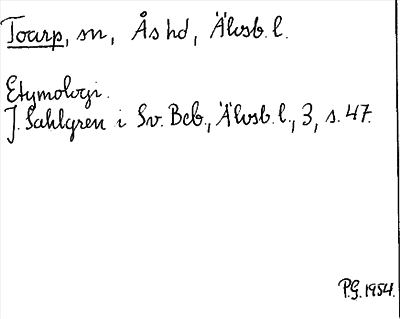 Toarp, sn, Ås hd, Älvsb. l.
Etymologi.
J. Sahlgren i Sv. Beb., Älvsb. l., 3, s. 47.
P.G. 1954.